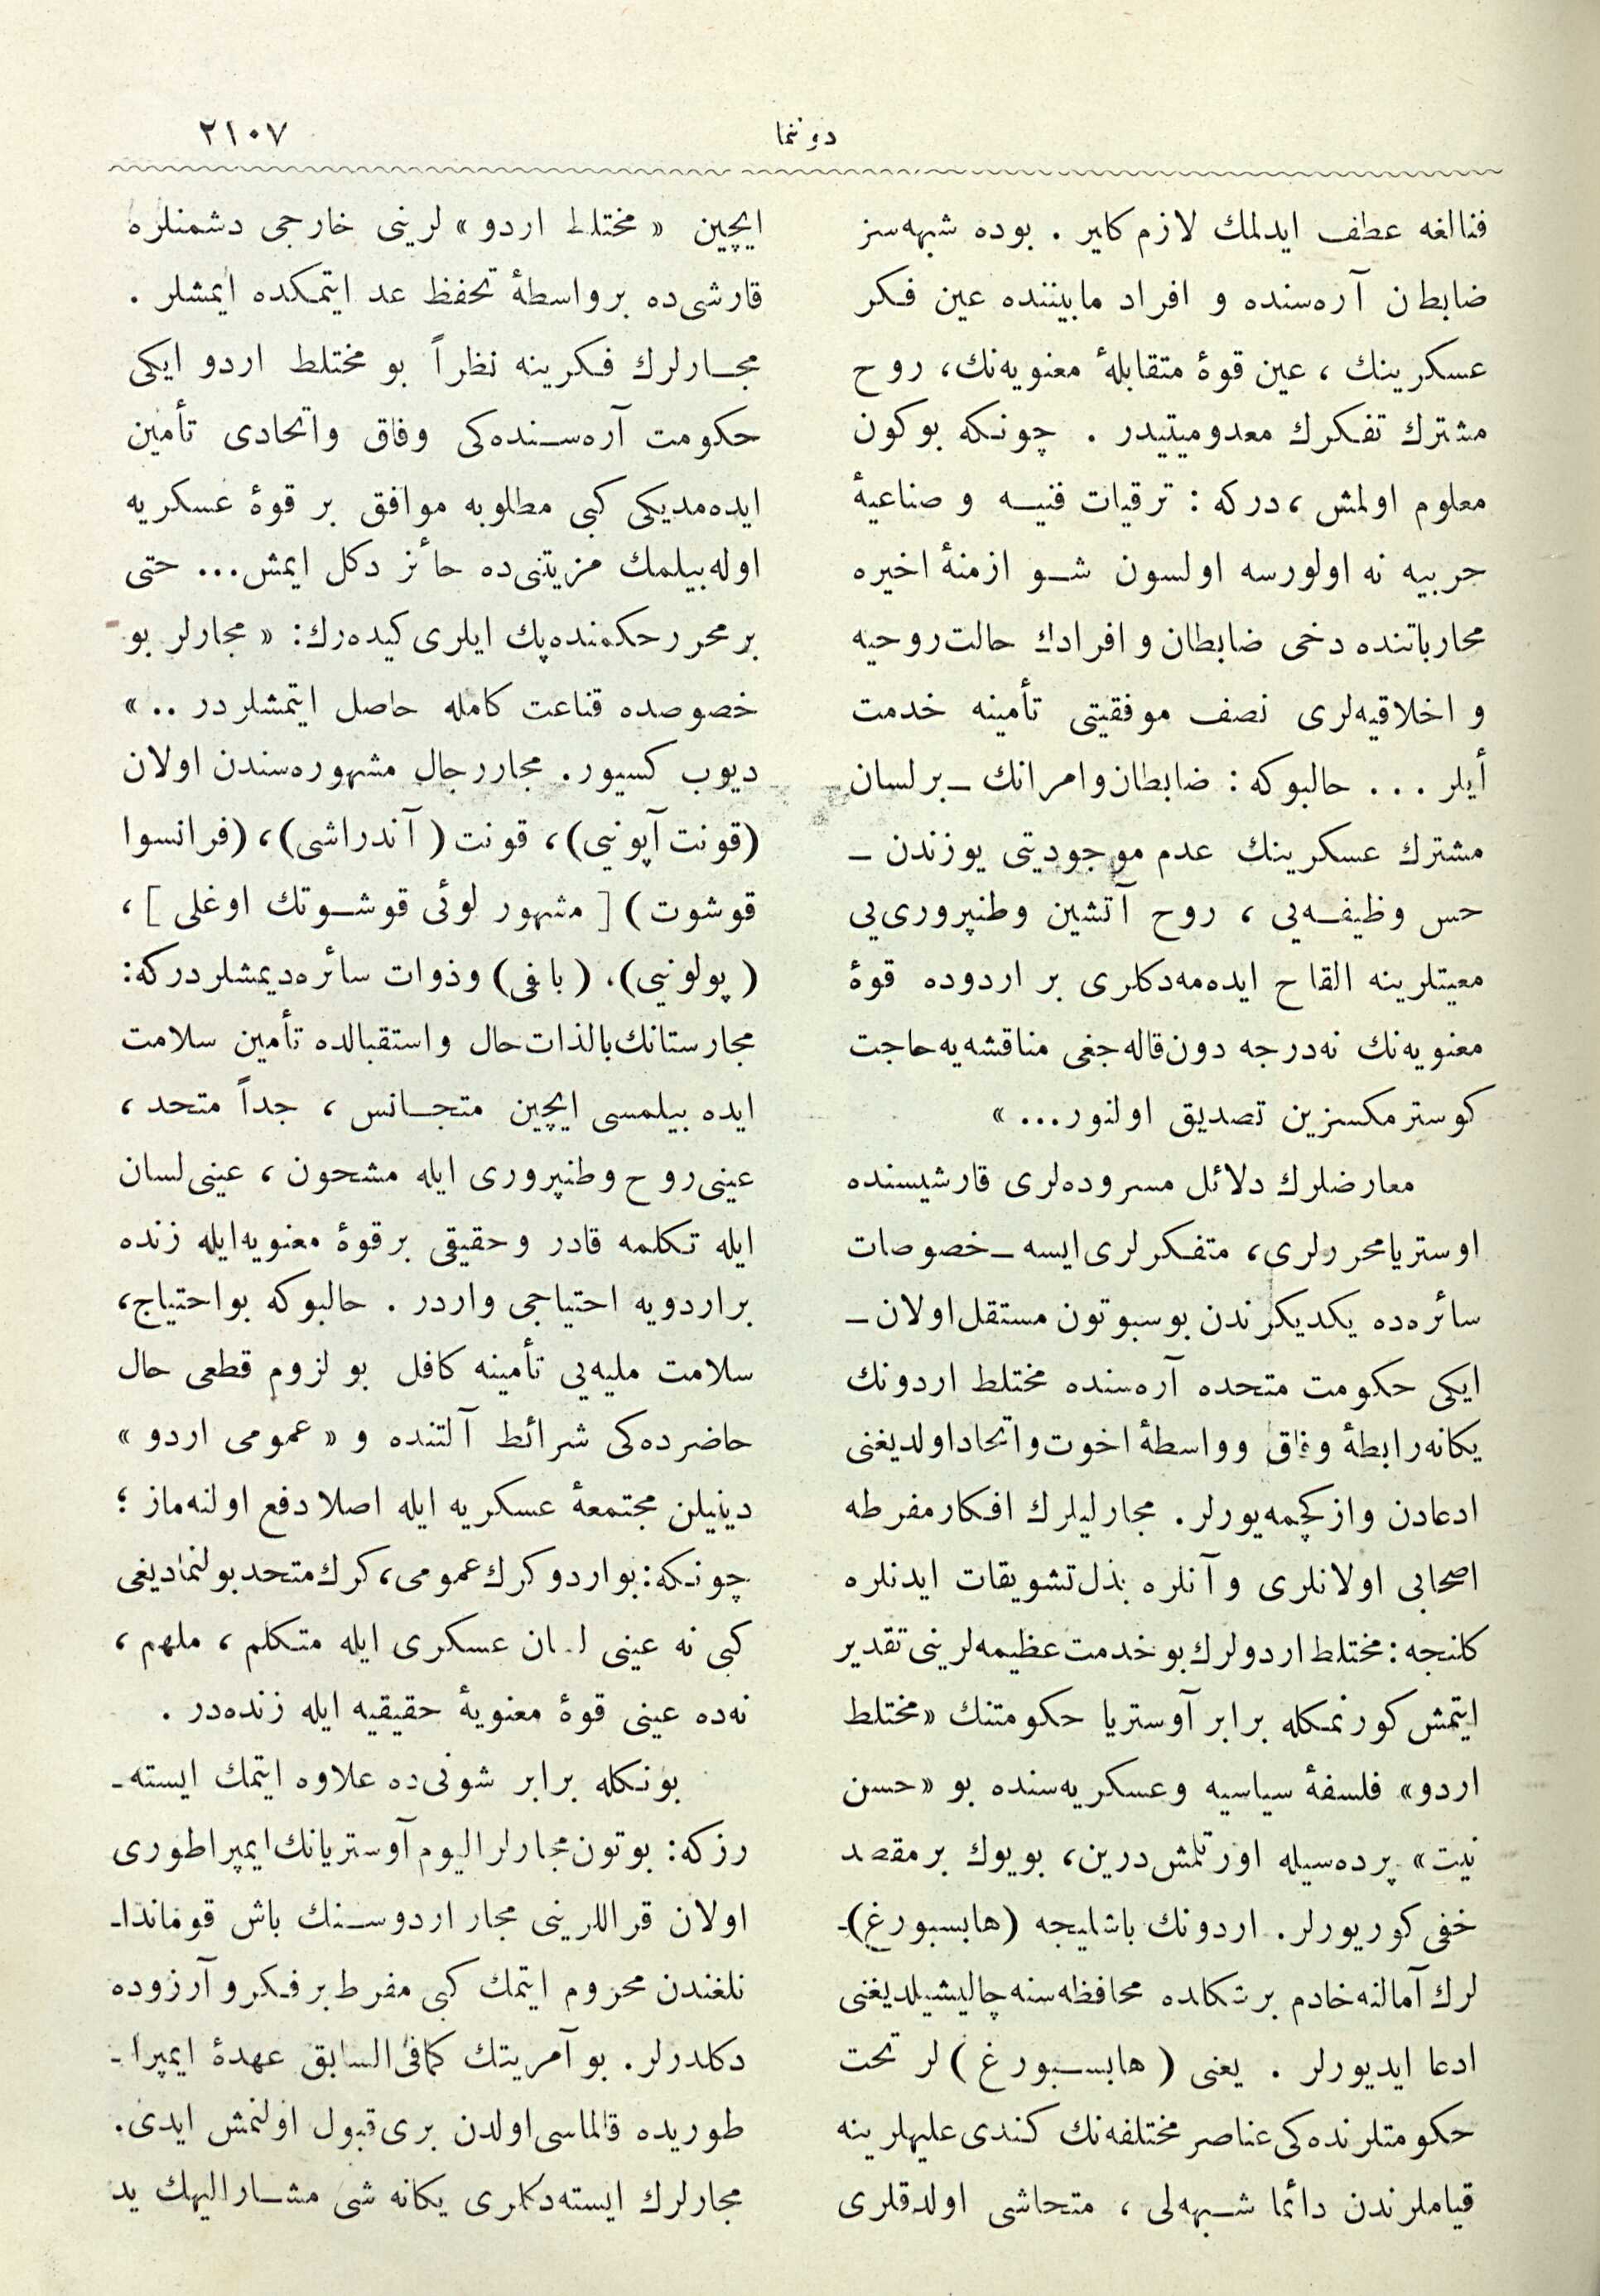 دوننما
٢١٠٧
فنالغه عطف ايدلمك لازم كلير . بوده شبهه‌سز
ضابطان آره‌سنده و افراد مابيننده عين فكر
عسكرينك ، عين قوهٔ متقابلهٔ معنويه‌نك، روح
مشترك تفكرك معدوميتيدر . چونكه بوكون
معلوم اولمش ، دركه : ترقيات فنيه و صناعيهٔ
حربيه نه اولورسه اولسون شو ازمنهٔ اخيره
محارباتنده دخى ضابطان و افرادك حالت روحيه
و اخلاقيه‌لرى نصف موفقيتى تأمينه خدمت
أيلر ... حالبوكه : ضابطان وامرانك ـ بر لسان
مشترك عسكرينك عدم موجوديتى يوزندن ـ
حس وظيفه‌يى ، روح آتشين وطنپرورى‌يى
معيتلرينه القاح ايده‌مه‌دكلرى بر اردوده قوهٔ
معنويه‌نك نه‌درجه دون قاله‌جغى مناقشه‌يه حاجت
كوسترمكسزين تصديق اولنور... »
معارضلرك دلائل مسروده‌لرى قارشيسنده
اوستريا محررلرى، متفكرلرى ايسه ـ خصوصات
سائره‌ده يكديكرندن بوسبوتون مستقل اولان ـ
ايكى حكومت متحده آره‌سنده مختلط اردونك
يكانه رابطهٔ وفاق وواسطهٔ اخوت واتحاد اولديغنى
ادعادن وازكچمه‌يورلر. مجارليلرك افكار مفرطه
اصحابى اولانلرى و آنلره بذل تشويقات ايدنلره
كلنجه : مختلط اردولرك بو خدمت عظيمه‌لرينى تقدير
ايتمش كورنمكله برابر آوستريا حكومتنك «مختلط
اردو» فلسفهٔ سياسيه وعسكريه‌سنده بو «حسن
نيت» پرده‌سيله اورتلمش درين، بويوك بر مقصد
خفى كوريورلر. اردونك باشليجه (هابسبورغ)ـ
لرك آمالنه خادم بر شكلده محافظه‌سنه چاليشيلديغنى
ادعا ايديورلر . يعنى ( هابسبورغ )لر تحت
حكومتلرنده‌كى عناصر مختلفه‌نك كندى عليهلرينه
قياملرندن دائما شبهه‌لى ، متحاشى اولدقلرى
ايچين « مختلط اردو » لرينى خارجى دشمنلره
قارشى‌ده بر واسطهٔ تحفظ عد ايتمكده ايمشلر .
مجارلرك فكرينه نظراً بو مختلط اردو ايكى
حكومت آره‌سنده‌كى وفاق واتحادى تأمين
ايده‌مديكى كبى مطلوبه موافق بر قوهٔ عسكريه
اوله‌بيلمك مزيتنى‌ده حائز دكل ايمش... حتى
بر محرر حكمنده پك ايلرى كيده‌رك: « مجارلر بو
خصوصده قناعت كامله حاصل ايتمشلردر .. »
ديوب كسيور. مجار رجال مشهوره‌سندن اولان
(قونت آپونيى)، قونت ( آندراشى)، (فرانسوا
قوشوت) [ مشهور لوئى قوشوتك اوغلى ]،
( پولونيى)، ( بافى) وذوات سائره ديمشلردركه:
مجارستانك بالذات حال واستقبالده تأمين سلامت
ايده بيلمسى ايچين متجانس ، جداً متحد ،
عينى روح وطنپرورى ايله مشحون ، عينى لسان
ايله تكلمه قادر وحقيقى بر قوهٔ معنويه ايله زنده
بر اردويه احتياجى واردر . حالبوكه بو احتياج،
سلامت مليه‌يى تأمينه كافل بو لزوم قطعى حال
حاضرده‌كى شرائط آلتنده و « عمومى اردو »
دينيلن مجتمعهٔ عسكريه ايله اصلا دفع اولنه‌ماز ؛
چونكه: بو اردو كرك عمومى، كرك متحد بولنماديغى
كبى نه عينى لسان عسكرى ايله متكلم ، ملهم ،
نه‌ده عينى قوهٔ معنويهٔ حقيقيه ايله زنده‌در .
بونكله برابر شونى‌ده علاوه ايتمك ايسته‌ـ
رزكه: بوتون مجارلر اليوم آوستريانك ايمپراطورى
اولان قراللرينى مجار اردوسنك باش قومانداـ
نلغندن محروم ايتمك كبى مفرط بر فكر و آرزوده
دكلدرلر. بو آمريتك كمافى‌السابق عهدهٔ ايمپراـ
طوريده قالماسى اولدن برى قبول اولنمش ايدى.
مجارلرك ايسته‌دكلرى يكانه شى مشاراليهك يد